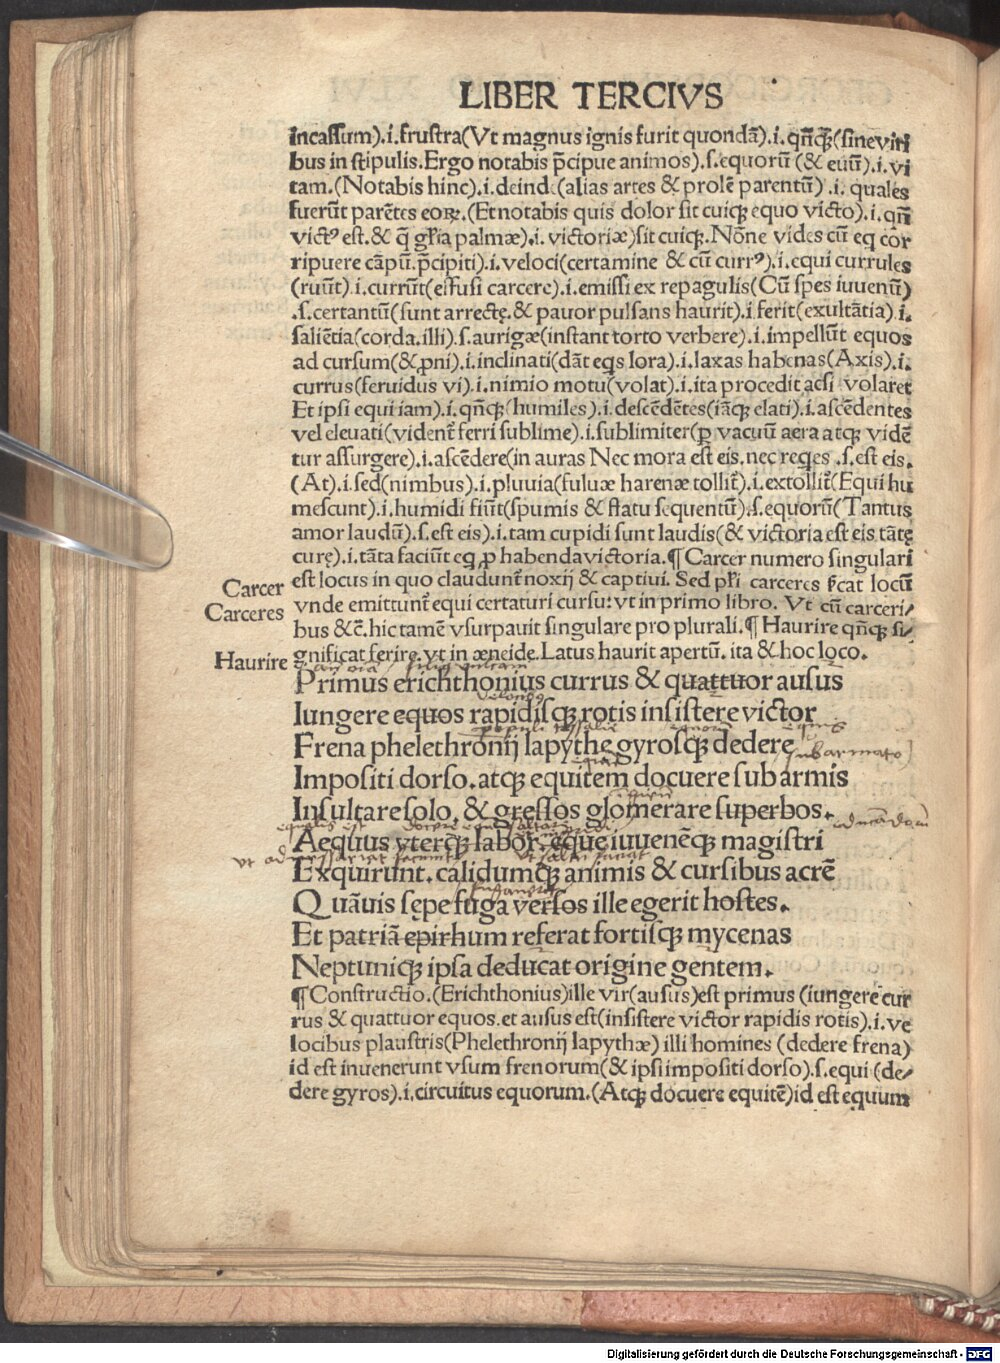 LIBER TERCIVS
incassum).i.frustra(Vt magnus ignis furit quondā).i.qn̄qꝫ(sine viri
bus in stipulis.Ergo notabis p̄cipue animos).s.equorū (& euū).i.vi
tam.(Notabis hinc).i.deinde(alias artes & prolē parentū) .i. quales
fuerūt parētes eoꝝ.(Et notabis quis dolor sit cuiqꝫ equo victo).i.qn̄
victꝰ est.& q̄ gl̄ia palmæ).i. victoriæ)sit cuiqꝫ.Nōne vides cū eq cor
ripuere cāpū.p̄cipiti).i.veloci(certamine & cū currꝰ).i.equi currules
(ruūt).i.currūt(effusi carcere).i.emissi ex repagulis(Cū spes iuuenū)
.s.certantū(sunt arrectę.& pauor pulsans haurit).i ferit(exultātia).i.
saliētia(corda.illi).s.aurigæ(instant torto verbere).i.impellūt equos
ad cursum(& ꝓni).i.inclinati(dāt eqs lora).i.laxas habenas(Axis).i.
currus(feruidus vi).i.nimio motu(volat).i.ita procedit acsi volaret
Et ipsi equi iam).i.qn̄qꝫ(humiles).i.descēdētes(iāqꝫ elati).i.ascēdentes
vel eleuati(vident̄ ferri sublime).i.sublimiter(ꝑ vacuū aera atqꝫ vidē
tur assurgere).i.ascēdere(in auras Nec mora est eis.nec reqes .s.est eis.
(At).i.sed(nimbus).i.pluuia(fuluæ harenæ tollit̄).i.extollit̄(Equi hu
mescunt).i.humidi fiūt(spumis & flatu sequentū).s.equorū(Tantus
amor laudū).s.est eis).i.tam cupidi sunt laudis(& victoria est eis tātę
curę).i.tāta faciūt eq ꝓ habenda victoria.¶ Carcer numero singulari
Carcer est locus in quo claudunt̄ noxij & captiui. Sed pl̄i carceres
Carceres vnde emittunt̄ equi certaturi cursu:vt in primo libro. Vt cū carceri/
bus &c̄.hic tamē vsurpauit singulare pro plurali.¶ Haurire qn̄qꝫ si/
Haurire gnificat ferire.vt in æneide.Latus haurit apertū.ita & hoc loco.
Primus erichthonius currus & quattuor ausus
Iungere equos rapidisqꝫ rotis insistere victor
Frena phelethronij lapythe gyrosqꝫ dedere
Impositi dorso.atqꝫ equitem docuere sub armis
Insultare solo, & gressos glomerare superbos.
Aequus vterqꝫ labor, eque iuuenēqꝫ magistri
Exquirunt.calidumqꝫ animis & cursibus acrē
Quāuis sępe fuga versos ille egerit hostes.
Et patriā epirhum referat fortisqꝫ mycenas
Neptuniqꝫ ipsa deducat origine gentem.
¶ Constructio.(Erichthonius)ille vir(ausus)est primus (iungere cur
rus & quattuor equos.et ausus est(insistere victor rapidis rotis).i.ve
locibus plaustris(Phelethronij lapythæ) illi homines (dedere frena)
id est inuenerunt vsum frenorum(& ipsi impositi dorso).s.equi (de/
dere gyros).i.circuitus equorum.(Atqꝫ docuere equitē)id est equum
Digitalisierung gefördert durch die Deutsche Forschungsgemeinschaft - DFG